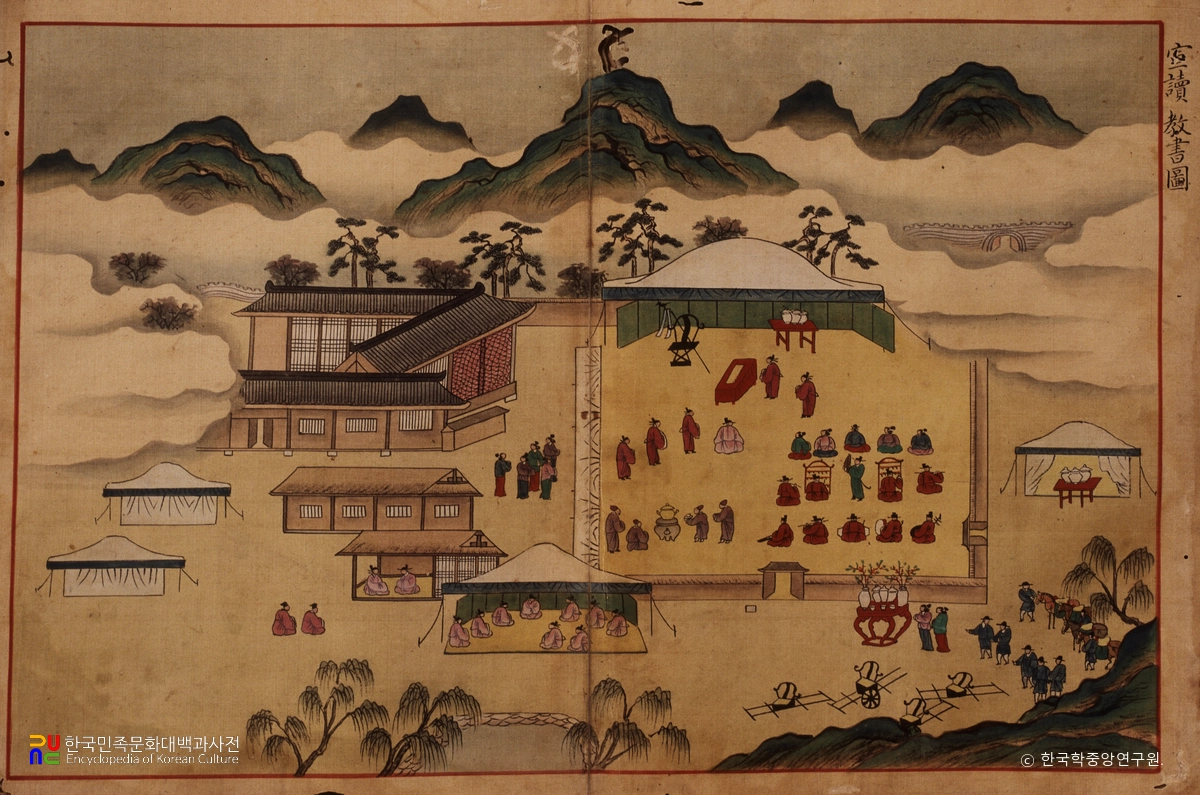 宣讀教書圖
한국민족문화대백과사전
Encyclopedia of Korean Culture
© 한국학중앙연구원